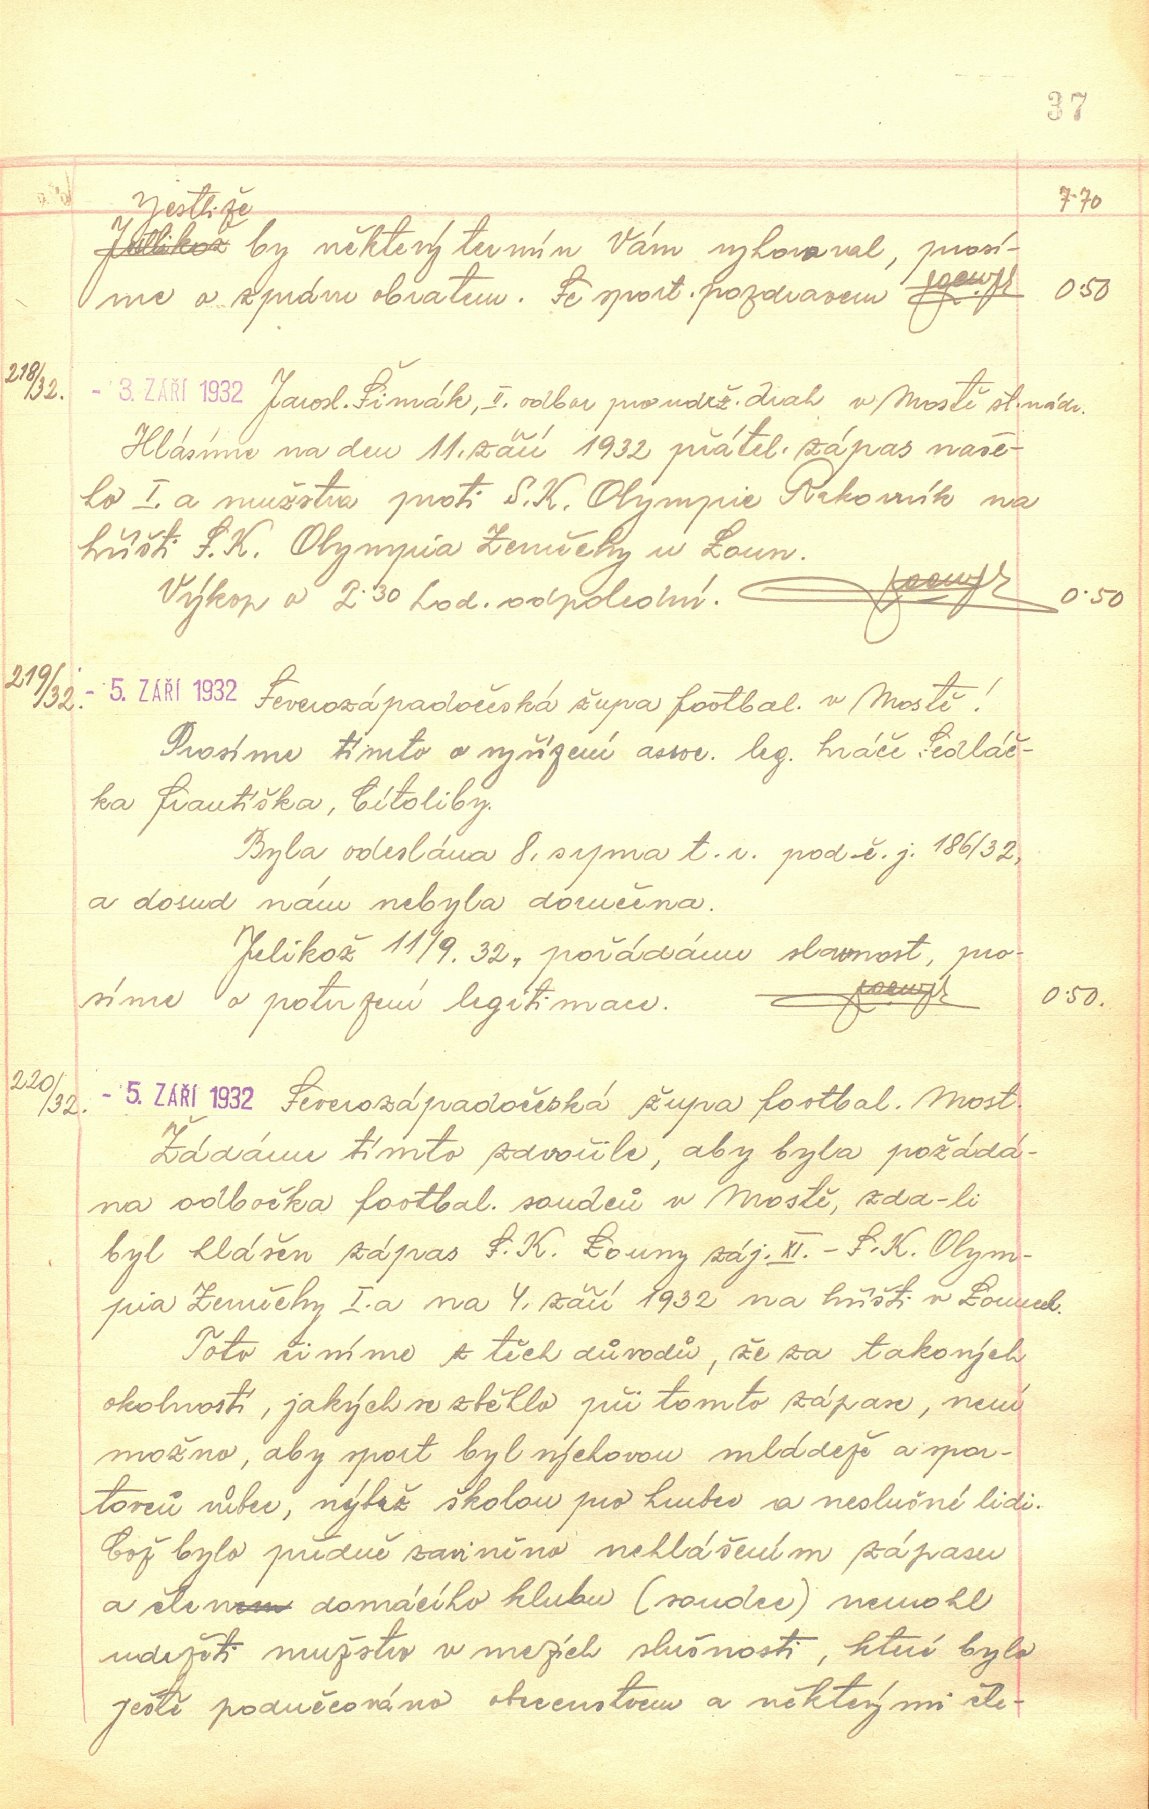 37
7·70
Jestliže
Jelikož by některý termín Vám vyhovoval, prosí-
me o zprávu obratem. Se sport. pozdravem 0·50
218/32. - 3. ZÁŘÍ 1932 Jarosl. Šimák, II. odbor pro udrž. drah v Mostě st. nádr.
Hlásíme na den 11. září 1932 přátel. zápas naše-
ho I. a mužstva proti S.K. Olympie Rakovník na
hřišti S.K. Olympia Zeměchy u Loun.
Výkop o 2·30 hod. odpolední. 0·50
219/32. - 5. ZÁŘÍ 1932 Severozápadočeská župa footbal. v Mostě!
Prosíme tímto o vyřízení assoc. leg. hráče Sedláč-
ka Františka, Cítoliby.
Byla odeslána 8. srpna t. r. pod č. j. 186/32,
a dosud nám nebyla doručena.
Jelikož 11/9. 32. pořádáme slavnost, pro-
síme o potvrzení legitimace. 0·50.
220/32. - 5. ZÁŘÍ 1932 Severozápadočeská župa footbal. Most.
Žádáme tímto zdvořile, aby byla požádá-
na odbočka footbal. soudců v Mostě, zda-li
byl hlášen zápas S.K. Louny záj. XI. - S.K. Olym-
pia Zeměchy I. a na 4. září 1932 na hřišti v Lounech.
Toto činíme z těch důvodů, že za takových
okolností, jakých se zběhlo při tomto zápase, není
možno, aby sport byl výchovou mládeže a spor-
tovců vůbec, nýbrž školou pro hrubce a neslušné lidi.
Což bylo předně zaviněno nehlášením zápasu
a členem domácího klubu (soudce) nemohl
udržeti mužstvo v mezích slušnosti, které bylo
ještě podněcováno obecenstvem a některými čle-